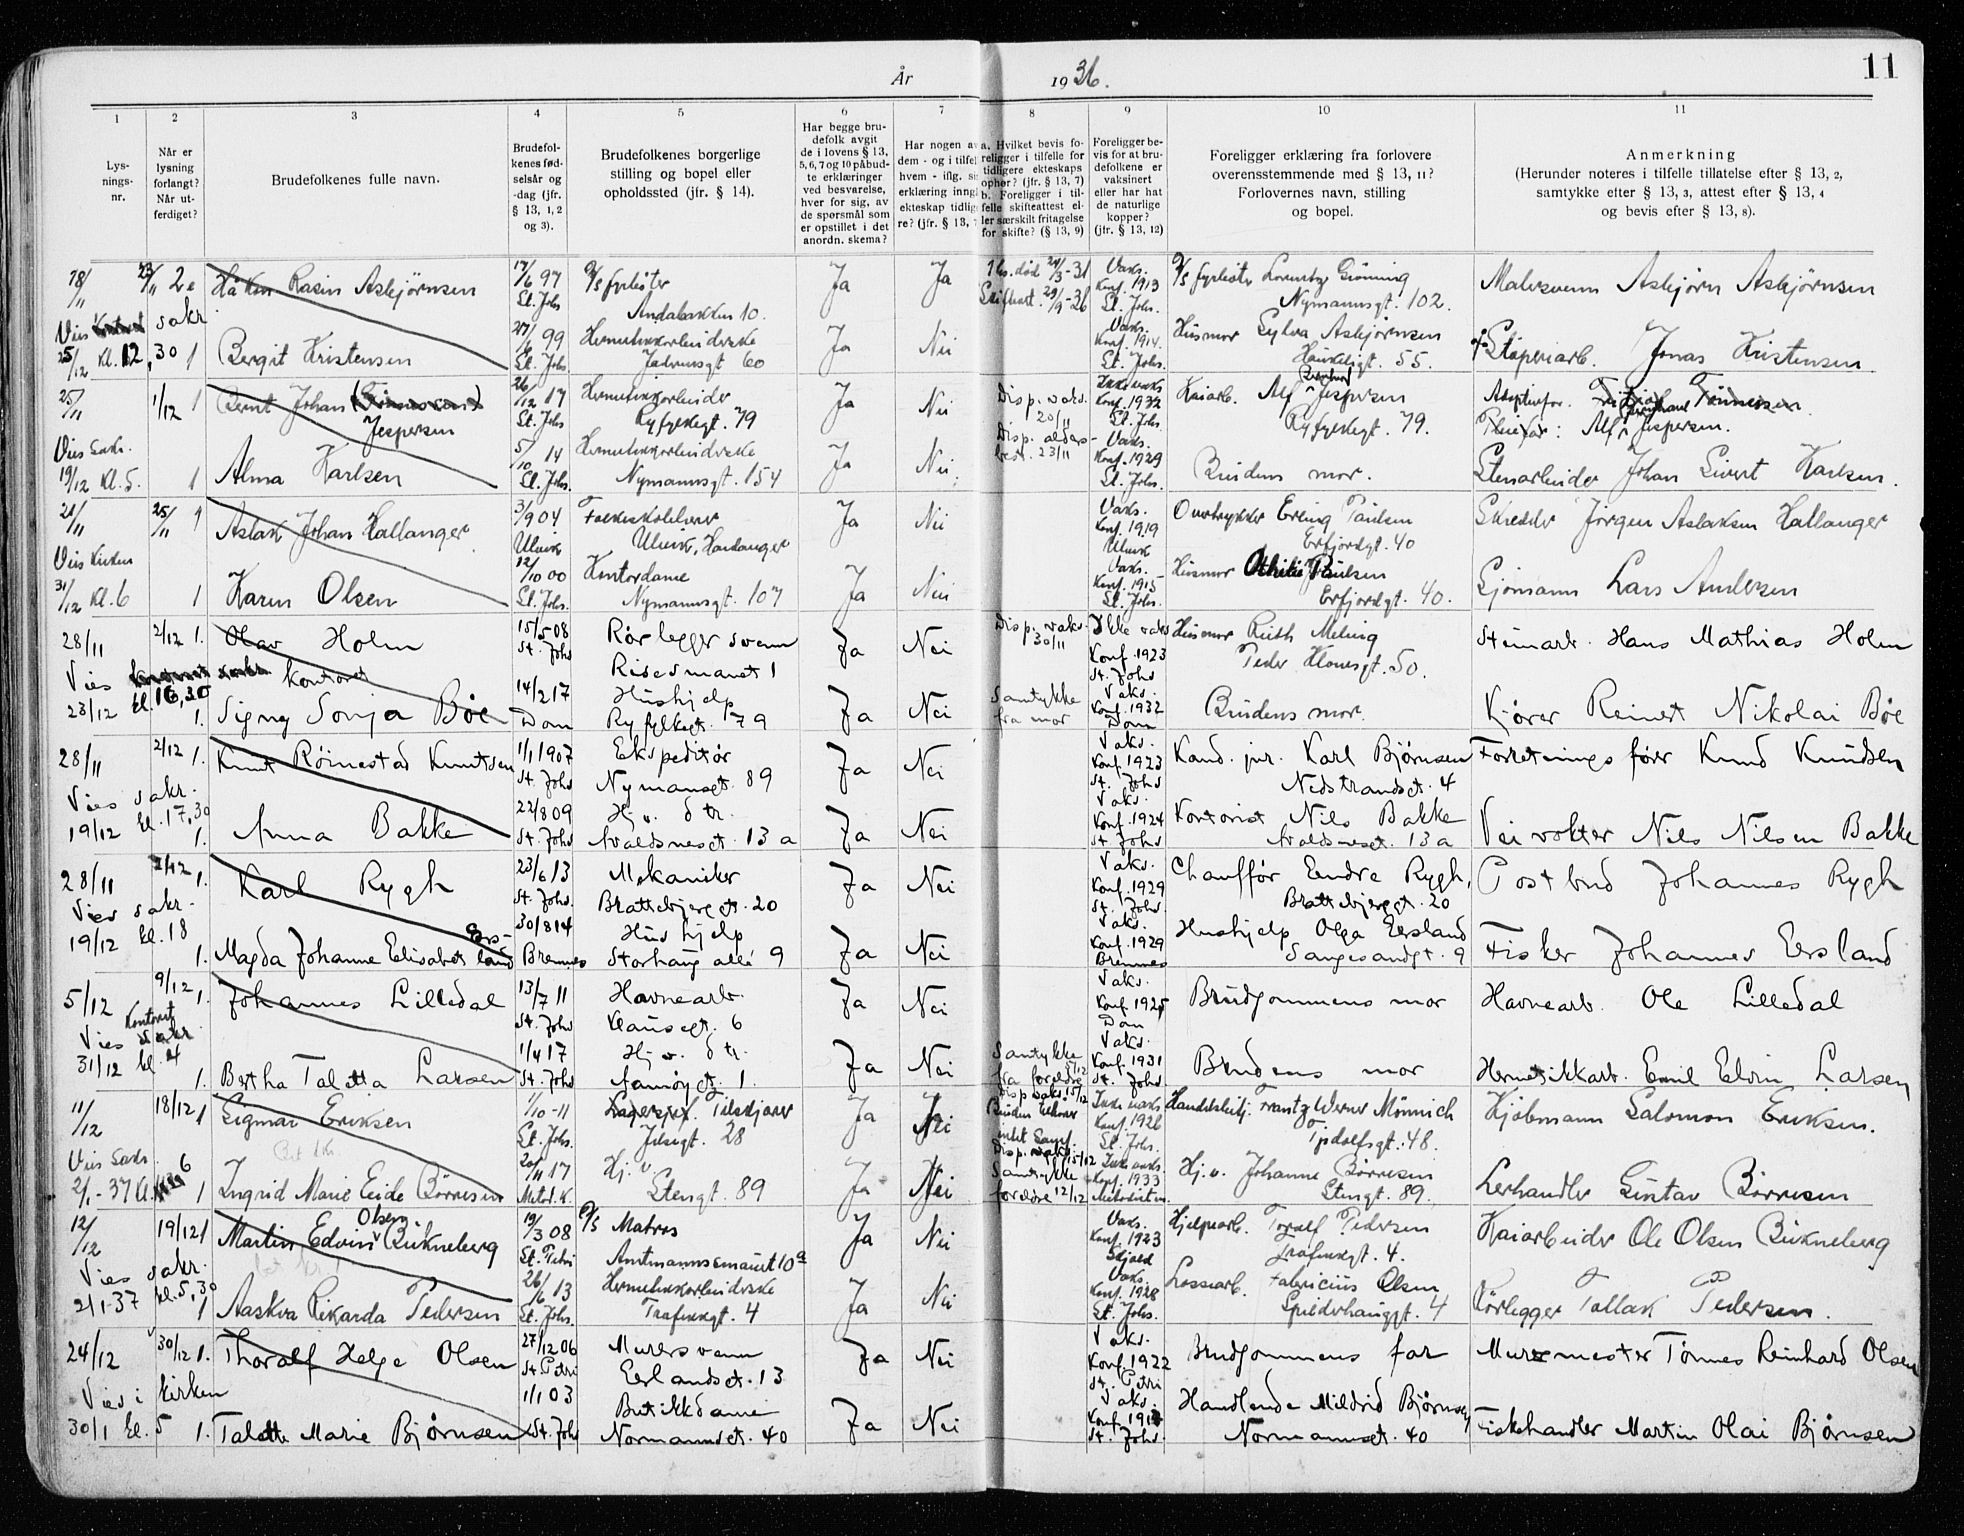 År 1936. 11
1 2 3 4 5 6 7 8 9 10 11
Lys-
nings-
nr.
Når er
lysning
forlangt?
Når ut-
ferdiget?
Brudefolkenes fulle navn.
Brudefol-
kenes fød-
selsår og
-dag (jfr.
§ 13, 1, 2
og 3).
Brudefolkenes borgerlige
stilling og bopel eller
opholdssted (jfr. § 14).
Har begge bru-
defolk avgit
de i lovens § 13,
5, 6, 7 og 10 påbud-
te erklæringer
ved besvarelse,
hver for sig, av
de spørsmål som
er opstillet i det
anordn. skema?
Har nogen av
dem - og i tilfel
hvem - iflg. si
erklæring inngå
ekteskap tidlige
re? (jfr. § 13,
a. Hvilket bevis fo-
religger i tilfelle for
tidligere ekteskaps
ophør? (jfr. § 13, 7)
b. Foreligger i til-
felle skifteattest el-
ler særskilt fritagelse
for skifte? (§ 13, 9)
Foreligger be-
vis for at bru-
defolkene er
vaksinert
eller har hat
de naturlige
kopper?
(jfr. § 13, 12)
Foreligger erklæring fra forlovere
overensstemmende med § 13, 11?
Forlovernes navn, stilling
og bopel.
Anmerkning
(Herunder noteres i tilfelle tillatelse efter § 13, 2,
samtykke efter § 13, 3, attest efter § 13, 4
og bevis efter § 13, 8).
18/11 23/11 Håkon Rasin Asbjørnsen 17/6 97 St. Johs D/s fyrbøter Ja Ja Vaks. Konf. 1913 St. Johs. D/s fyrbøter Nymannsgt. 102. Malersvenn Asbjørn Asbjørnsen
Vies sakr.
25/12 Kl. 12,30 1 Bergit Kristensen 27/6 99 St. Johs Hermetikkarbeiderske 60 Ja Nei Vaks. Konf. 1914. St. Johs. Husmor Sylva Asbjørnsen Haukeligt. 55. Støperiarb. Jonas Kristensen
25/11 1/12 1 Bernt Johan Jespersen 26/12 17 St. Johs Hermetikkarbeider Ryfylkegt. 79 Ja Nei Disp. vaks. 20/11 Disp. alders- best. 23/11 Ikke vaks Konf. 1932 St. Johs. Kaiarb. Alf Bernhard Jespersen Ryfylkegt. 79. Adoptivfar. Alf Bernhard Jespersen.
Vies Sakr.
19/12 Kl. 5. 1 Alma Karlsen 5/10 14 St. Johs. Hermetikkarbeiderske Nymannsgt. 154 Ja Nei Vaks. Konf. 1929 St. Johs. Brudens mor. Stenarbeider Johan Sivert Karlsen.
21/11 25/11 1 Aslak Johan Hallanger 3/9 04 Ulvik Folkeskolelærer Ulvik, Hardanger Ja Nei Vaks. Konf. 1919 Ulvik Overtrykker Erling Paulsen Erfjordgt. 40 Skredder Jørgen Aslaksen Hallanger
Vies Kirken
31/12 Kl. 6 1 Karen Olsen 12/10 00 St. Johs. Kontordame Nymannsgt. 107 Ja Nei Vaks. Konf. 1915 St. Johs. Husmor Othilie Paulsen Erfjordgt. 40. Sjømann Lars Andersen
28/11 2/12 1. Olav Holm 15/5 08 St. Johs Rørleggersvenn 1 Ja Nei Disp. vaks. 30/11 Ikke vaks Konf. 1923 St. Johs Husmor Ruth Meling Peder Klowsgt. 50. Steinarb. Hans Mathias Holm
Vies kontoret
23/12 kl. 16,30 1. Signy Sonja Bøe 14/2 17 Dom Hushjelp Ryfylkegt. 79 Ja Nei Samtykke fra mor Vaks. Konf. 1932 Dom Brudens mor. Kjører Reinert Nikolai Bøe
28/11 2/12 1. Knut Røinestad Knutsen 1/1 1907 St. Johs Ekspeditør Nymansgt. 89 Ja Nei Vaks. Konf. 1923 St. Johs Kand. jur. Karl Bjørnsen Nedstrandsgt. 4 Forretningsfører Knud Knudsen
Vies sakr.
19/12 kl. 17,30 1. Anna Bakke 22/8 09 St. Johs Hj. v. dtr. Avaldsnesgt. 13 a Ja Nei Vaks. Konf. 1924 St. Johs Kontorist Nils Bakke Avaldsnesgt. 13 a Veivokter Nils Nilsen Bakke
28/11 2/12 1. Karl Rygh 23/6 13 St. Johs. Mekaniker Brattebjergt. 20 Ja Nei Vaks. Konf. 1929 St. Johs. Chauffør Endre Rygh, Brattebjergt. 20 Postbud Johannes Rygh
Vies sakr.
19/12 kl. 18 1. Magda Johanne Elisabet Ersland 30/8 14 Bremnes Hushjelp Storhaug allé 9 Ja Nei Vaks. Konf. 1929 Bremnes Hushjelp Olga Eersland Sangesandgt. 9 Fisker Johannes Eersland
5/12 9/12 1. Johannes Lilledal 13/7 11 St. Johs Havnearb. Klausegt. 6 Ja Nei Vaks. Konf. 1925 Dom Brudgommens mor Havnearb. Ole Lilledal
Vies Kontoret
31/12 kl. 4 1. Bertha Taletta Larsen 1/4 17 St. Johs Hj. v. dtr. 1. Ja Nei Samtykke fra foreldre Vaks. Konf. 1931 St. Johs Brudens mor Hermetikkarb. Emil Edvin Larsen
11/12 18/12 1 Sigmar Eriksen 1/10-11 St. Johs. Tilskjærer 28 Ja Nei Disp vaks. 15/12 Ikke vaks Konf. 1926 St. Johs. Frantz Werner Mønnich 48. Kjøbmann Salomon Eriksen.
Vies Sakr.
2/1-37 Kl. 6 1 Ingrid Marie Eide Børresen 20/11 17 Metod. K. Hj. v. Stengt. 89 Ja Nei Disp. vaks. 15/12 Samtykke foreldre 12/12 Ikke vaks. Konf. 1933 Metodisten. Hj. v. Johanne Børresen Stengt. 89. Lerhandler Gustav Børresen
12/12 19/12 1 Martin Edvin Olsen Birkneberg 19/3 08 St. Petri D/s Matros 10a Ja Nei Vaks. Konf. 1923 Skjold Hjelpearb. Toralf Pedersen 4. Kaiarbeider Ole Olsen Birkneberg
Vies sakr.
2/1-37 kl. 5,30 1 Aaskva Rikarda Pedersen 26/6 13 St. Johs. Hermetikkarbeiderske 4 Ja Nei Vaks. Konf. 1928 St. Johs. Lossearb. Fabricius Olsen Spilderhauggt. 4 Rørlegger Tallak Pedersen.
24/12 30/12 1. Thoralf Helge Olsen 27/12 06 St. Petri Murersvenn Eerlandsgt. 13 Ja Nei Vaks. Konf. 1922 St. Petri Brudgommens far Murermester Tønnes Reinhard Olsen
Vies i kirken
30/1 kl. 5 1. Talette Marie Bjørnsen 1/1 03 St. Johs Butikkdame Normannsgt. 40 Ja Nei Vaks. St. Johs. Handlende Mildrid Bjørnsen Normannsgt. 40 Fiskehandler Martin Olai Bjørnsen